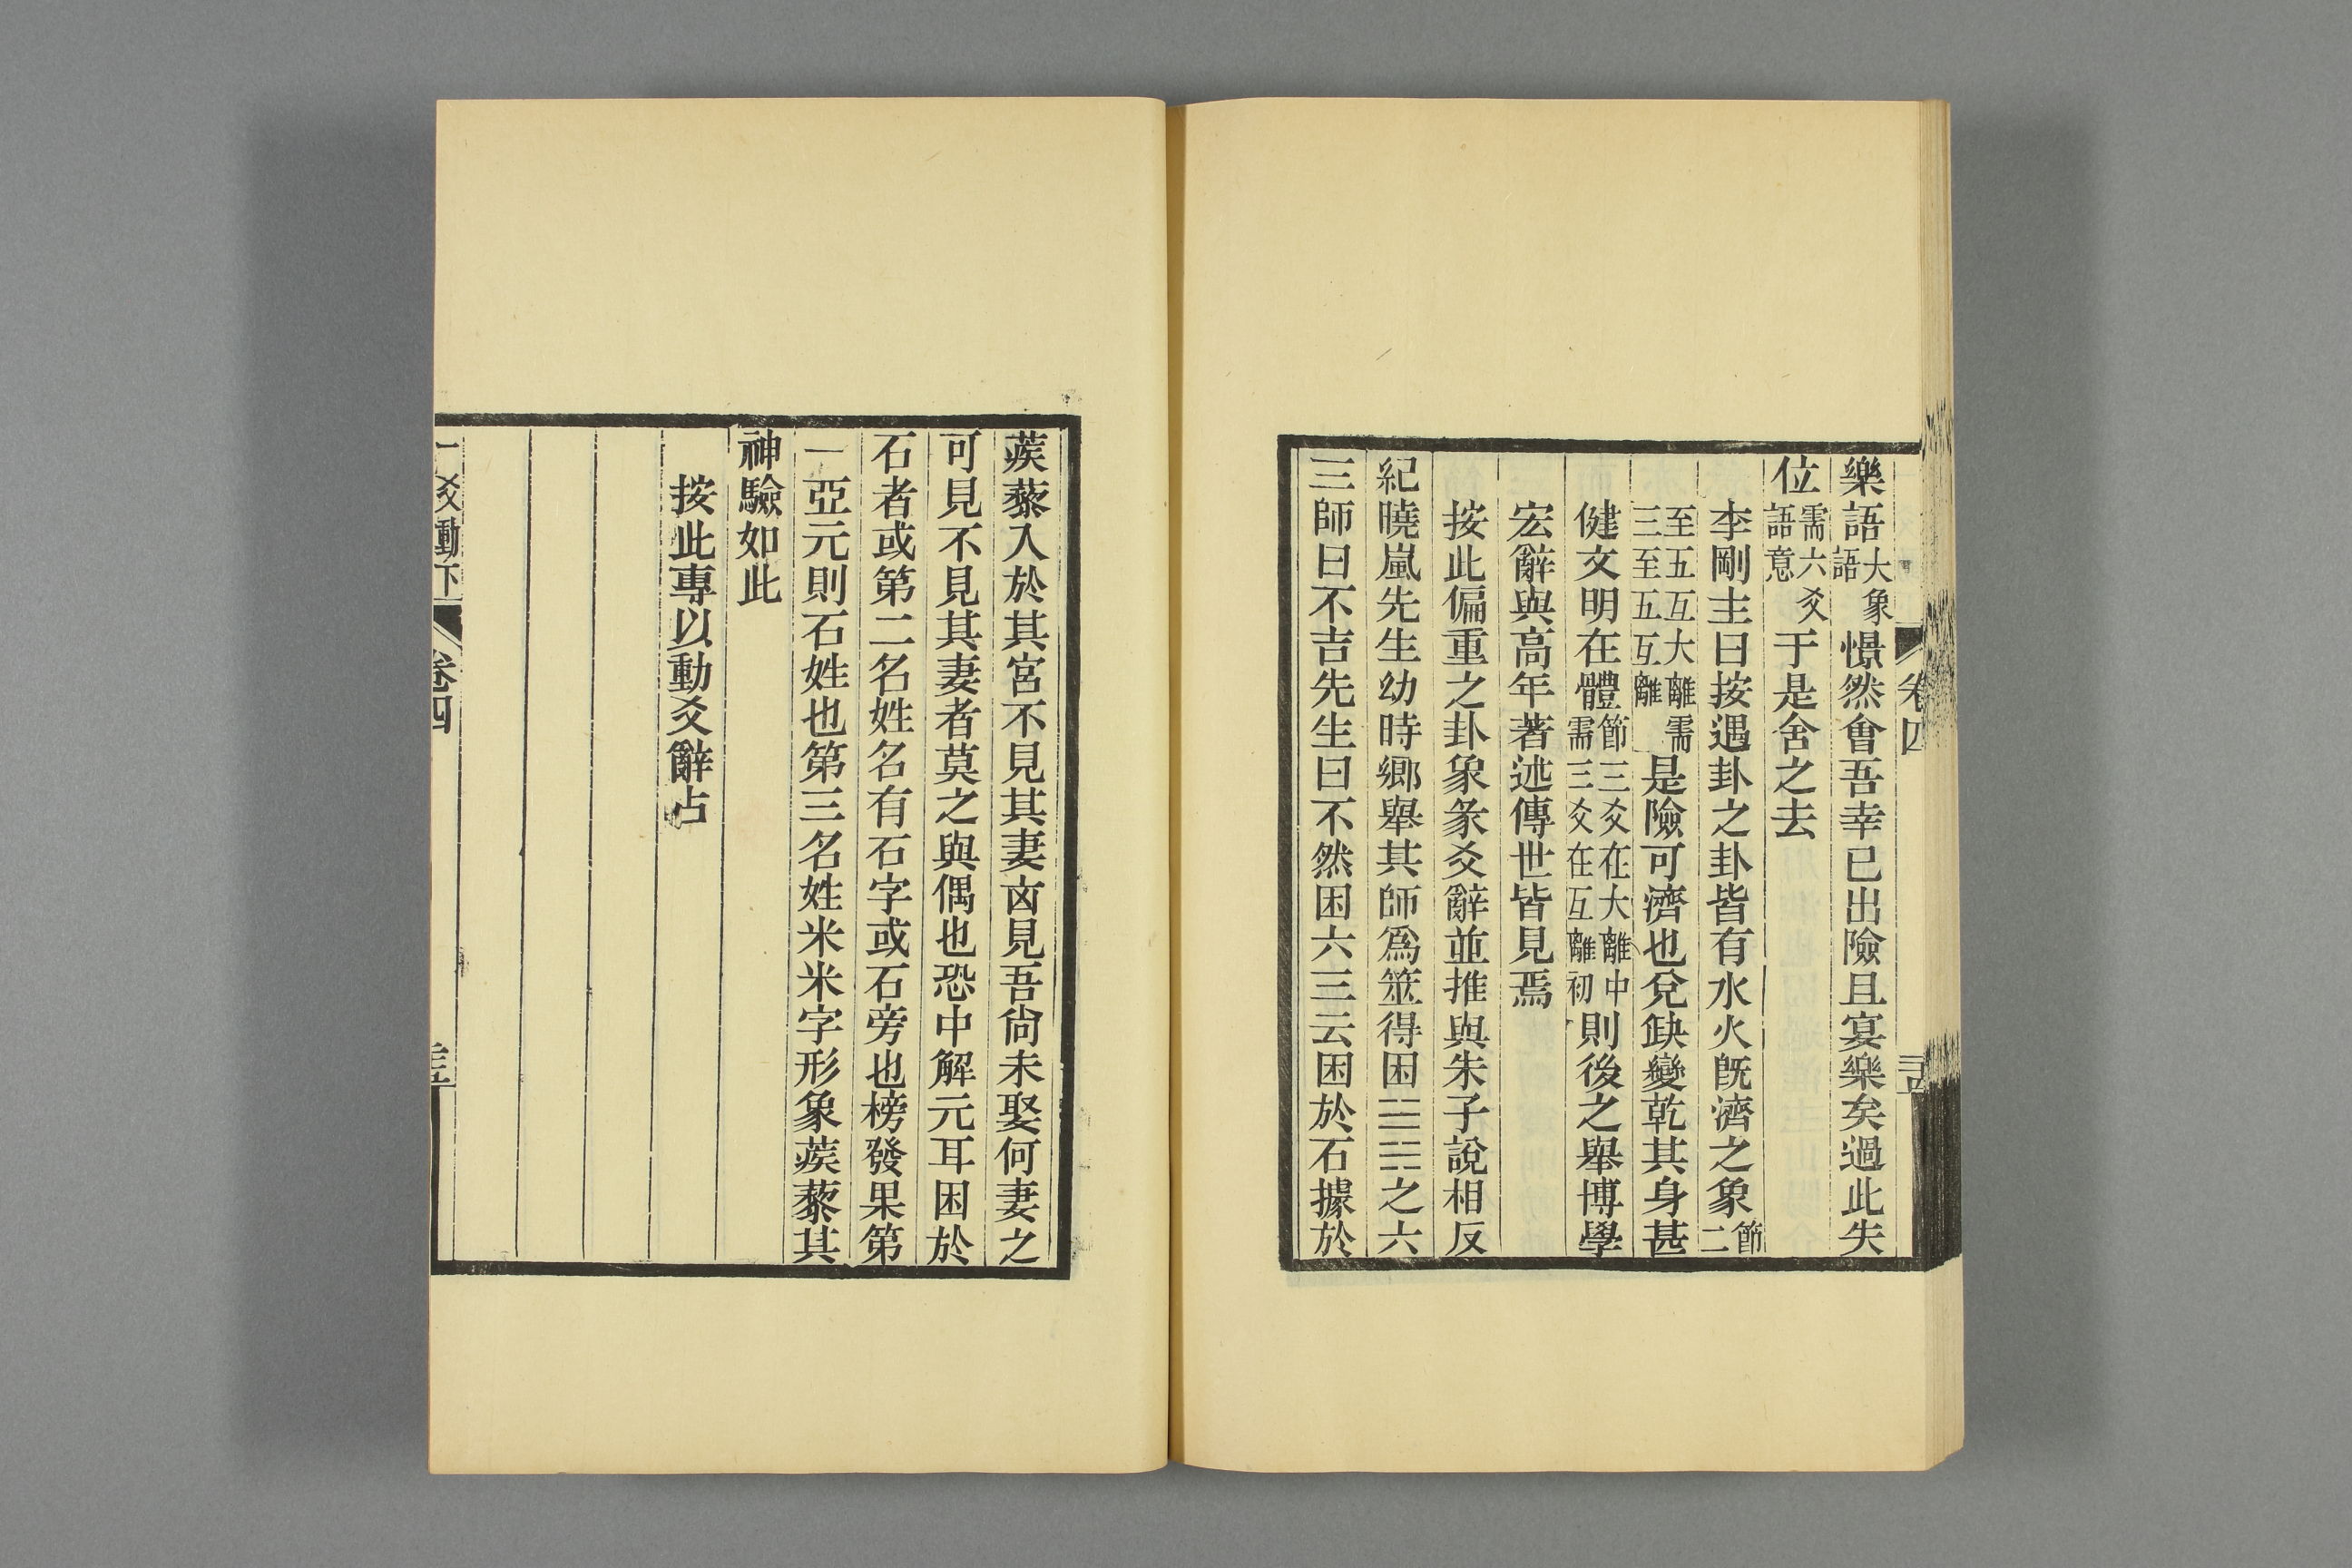 樂語大象語憬然會吾幸已出險且宴樂矣過此失
位需六爻語意于是舍之去
李剛主曰按遇卦之卦皆有水火旣濟之象節二
至五互大離需三至五互離是險可濟也兌缺變乾其身甚
健文明在體節三爻在大離中需三爻在互離初則後之舉博學
宏辭與高年著述傳世皆見焉
按此偏重之卦象彖爻辭並推與朱子說相反
紀曉嵐先生幼時鄉舉其師爲筮得困之六
三師曰不吉先生曰不然困六三云困於石據於
卷四
蒺藜入於其宮不見其妻㐫見吾尙未娶何妻之
可見不見其妻者莫之與偶也恐中解元耳困於
石者或第二名姓名有石字或石旁也榜發果第
一亞元則石姓也第三名姓米米字形象蒺藜其
神驗如此
按此專以動爻辭占
一爻動下
卷四